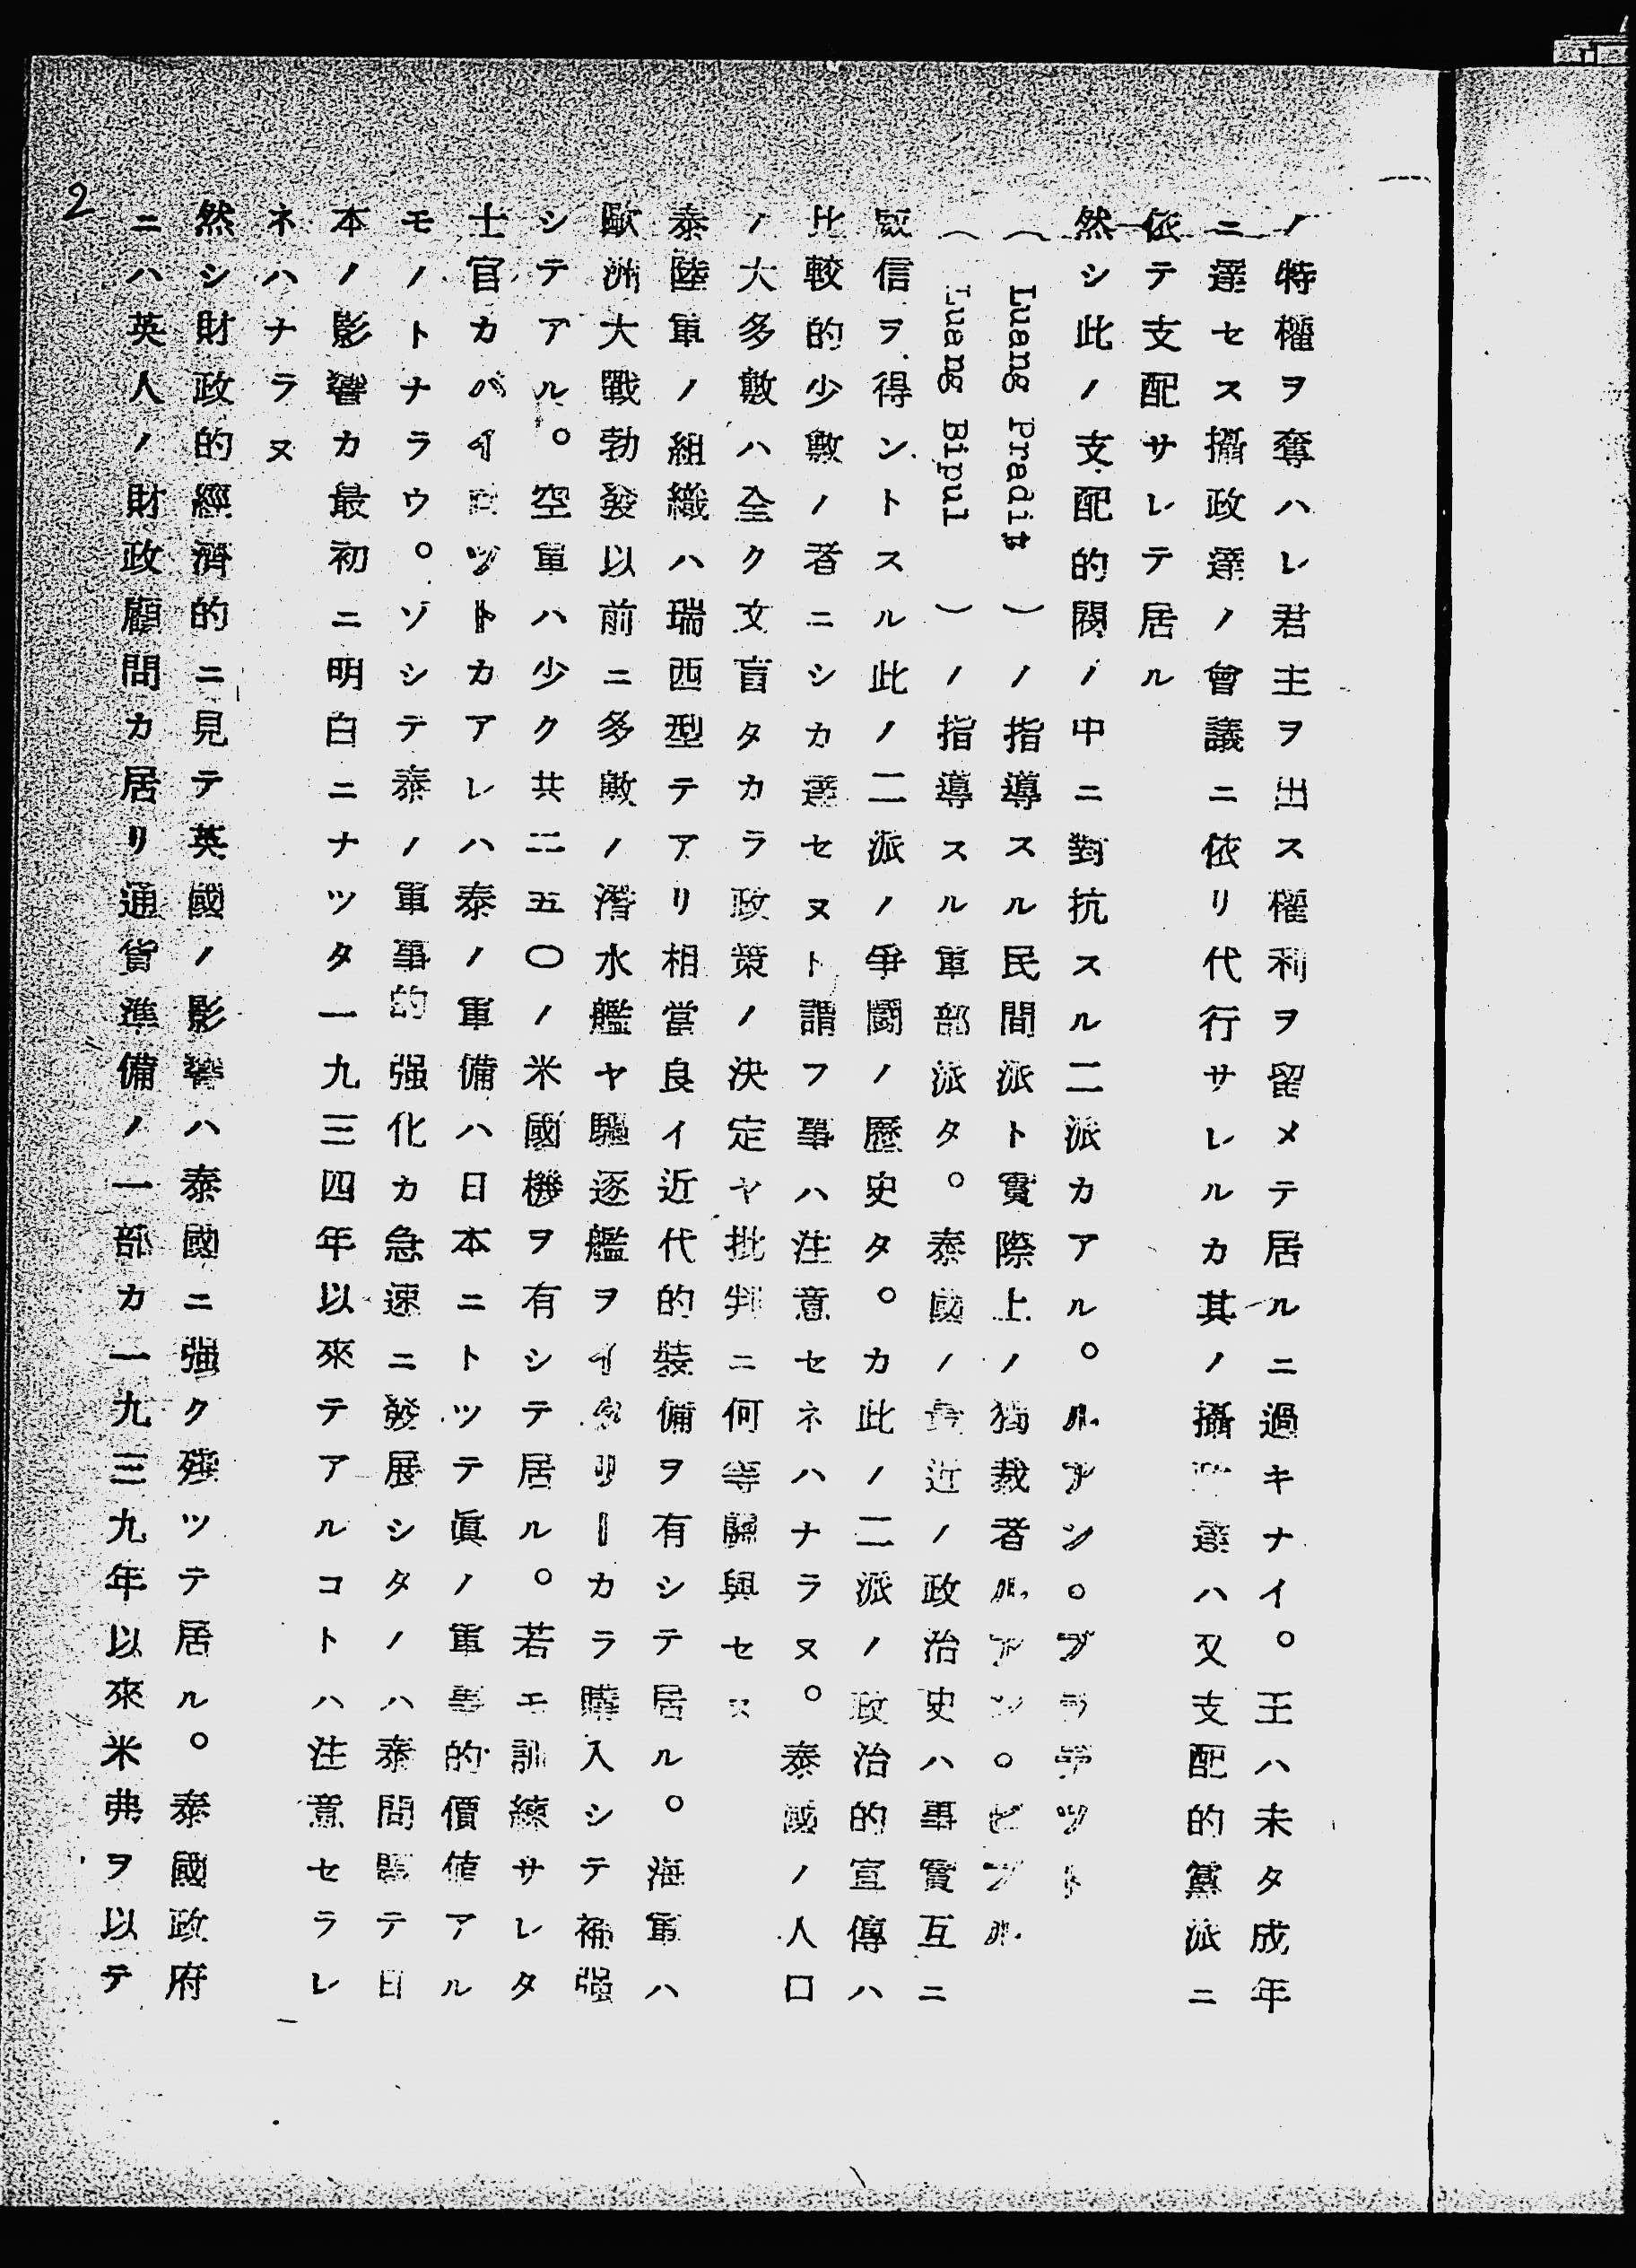 ノ特權ヲ奪ハレ君主ヲ出ス權利ヲ留メテ居ルニ過キナイ。王ハ未タ成年
ニ達セス攝政達ノ會議ニ依リ代行サレルカ其ノ攝政達ハ又支配的黨派ニ
依テ支配サレテ居ル
然シ此ノ支配的閥ノ中ニ對抗スル二派カアル。ルアン。プラヂツト
（Luang Pradit）ノ指導スル民間派ト實際上ノ獨裁者ルアン。ビプル
（Luang Bipul）ノ指導スル軍部派タ。泰國ノ最近ノ政治史ハ事實互ニ
威信ヲ得ントスル此ノ二派ノ爭鬪ノ歷史タ。カ此ノ二派ノ政治的宣傳ハ
比較的少數ノ者ニシカ達セヌト謂フ事ハ注意セネハナラヌ。泰國ノ人口
ノ大多數ハ全ク文盲タカラ政策ノ決定ヤ批判ニ何等關與セス
泰陸軍ノ組織ハ瑞西型テアリ相當良イ近代的裝備ヲ有シテ居ル。海軍ハ
歐洲大戰勃發以前ニ多數ノ潛水艦ヤ驅逐艦ヲイタリーカラ購入シテ補强
シテアル。空軍ハ少ク共二五〇ノ米國機ヲ有シテ居ル。若モ訓練サレタ
士官カパイロツトカアレハ泰ノ軍備ハ日本ニトツテ眞ノ軍事的價値アル
モノトナラウ。ソシテ泰ノ軍事的强化カ急速ニ發展シタノハ泰問題テ日
本ノ影響カ最初ニ明白ニナツタ一九三四年以來テアルコトハ注意セラレ
ネハナラヌ
然シ財政的經濟的ニ見テ英國ノ影響ハ泰國ニ强ク殘ツテ居ル。泰國政府
ニハ英人ノ財政顧問カ居リ通貨準備ノ一部カ一九三九年以來米弗ヲ以テ
2